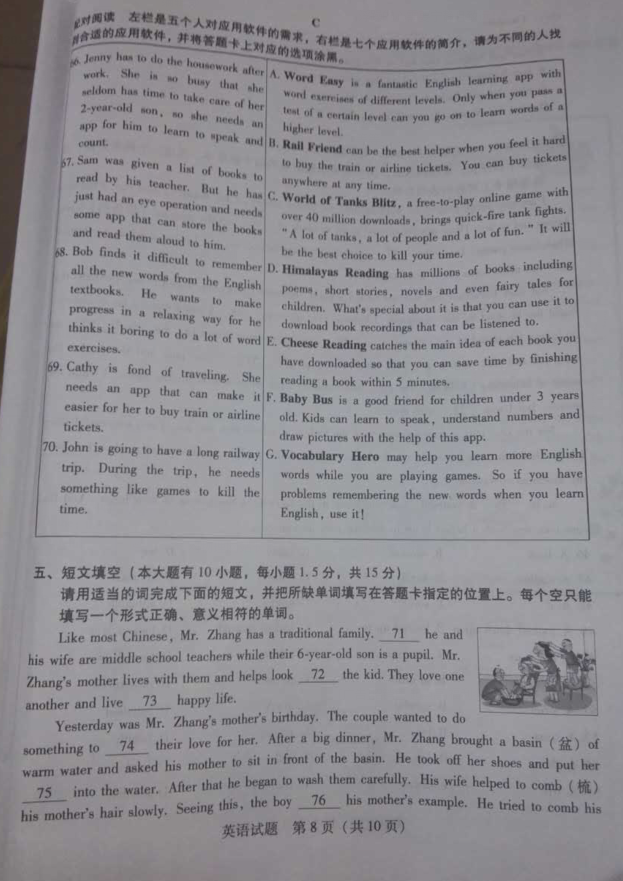 C
配对阅读 左栏是五个人对应用软件的需求，右栏是七个应用软件的简介，请为不同的人找
合适的应用软件，并将答题卡上对应的选项涂黑。
66. Jenny has to do the housework after
work. She is so busy that she
seldom has time to take care of her
2-year-old son, so she needs an
app for him to learn to speak and
count.
67. Sam was given a list of books to
read by his teacher. But he has
just had an eye operation and needs
some app that can store the books
and read them aloud to him.
68. Bob finds it difficult to remember
all the new words from the English
textbooks. He wants to make
progress in a relaxing way for he
thinks it boring to do a lot of word
exercises.
69. Cathy is fond of traveling. She
needs an app that can make it
easier for her to buy train or airline
tickets.
70. John is going to have a long railway
trip. During the trip, he needs
something like games to kill the
time.
A. Word Easy is a fantastic English learning app with
word exercises of different levels. Only when you pass a
test of a certain level can you go on to learn words of a
higher level.
B. Rail Friend can be the best helper when you feel it hard
to buy the train or airline tickets. You can buy tickets
anywhere at any time.
C. World of Tanks Blitz, a free-to-play online game with
over 40 million downloads, brings quick-fire tank fights.
"A lot of tanks, a lot of people and a lot of fun." It will
be the best choice to kill your time.
D. Himalayas Reading has millions of books including
poems, short stories, novels and even fairy tales for
children. What's special about it is that you can use it to
download book recordings that can be listened to.
E. Cheese Reading catches the main idea of each book you
have downloaded so that you can save time by finishing
reading a book within 5 minutes.
F. Baby Bus is a good friend for children under 3 years
old. Kids can learn to speak, understand numbers and
draw pictures with the help of this app.
G. Vocabulary Hero may help you learn more English
words while you are playing games. So if you have
problems remembering the new words when you learn
English, use it!
五、短文填空（本大题有 10 小题，每小题 1.5 分，共 15 分）
请用适当的词完成下面的短文，并把所缺单词填写在答题卡指定的位置上。每个空只能
填写一个形式正确、意义相符的单词。
Like most Chinese, Mr. Zhang has a traditional family. 71 he and
his wife are middle school teachers while their 6-year-old son is a pupil. Mr.
Zhang's mother lives with them and helps look 72 the kid. They love one
another and live 73 happy life.
Yesterday was Mr. Zhang's mother's birthday. The couple wanted to do
something to 74 their love for her. After a big dinner, Mr. Zhang brought a basin（盆）of
warm water and asked his mother to sit in front of the basin. He took off her shoes and put her
75 into the water. After that he began to wash them carefully. His wife helped to comb（梳）
his mother's hair slowly. Seeing this, the boy 76 his mother's example. He tried to comb his
英语试题 第 8 页（共 10 页）